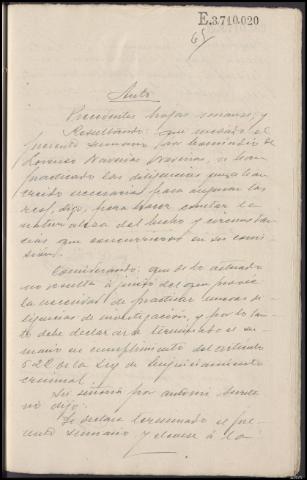 E.3.710.020
65
Auto
Precedentes hojas sumario, y
Resultando: que incoado el
presente sumario por homicidio de
Lorenzo Navarias Navarias, se han
practicado las diligencias que se han
creido necesarias para
reos, digo, para hacer constar la
naturaleza del hecho y circunstan
cias que concurrieron en su comi
sion.
Considerando: que de lo actuado
no resulta á juicio del que provee
la necesidad de practicar nuevas di
ligencias de investigación, y por lo tan
to debe declararse terminado el su
mario en cumplimiento del articulo
622 de la Ley de Enjuiciamiento
criminal.
Su señoria por ante mi
no dijo:
Se declara terminado el pre
sente sumario y elevese á la